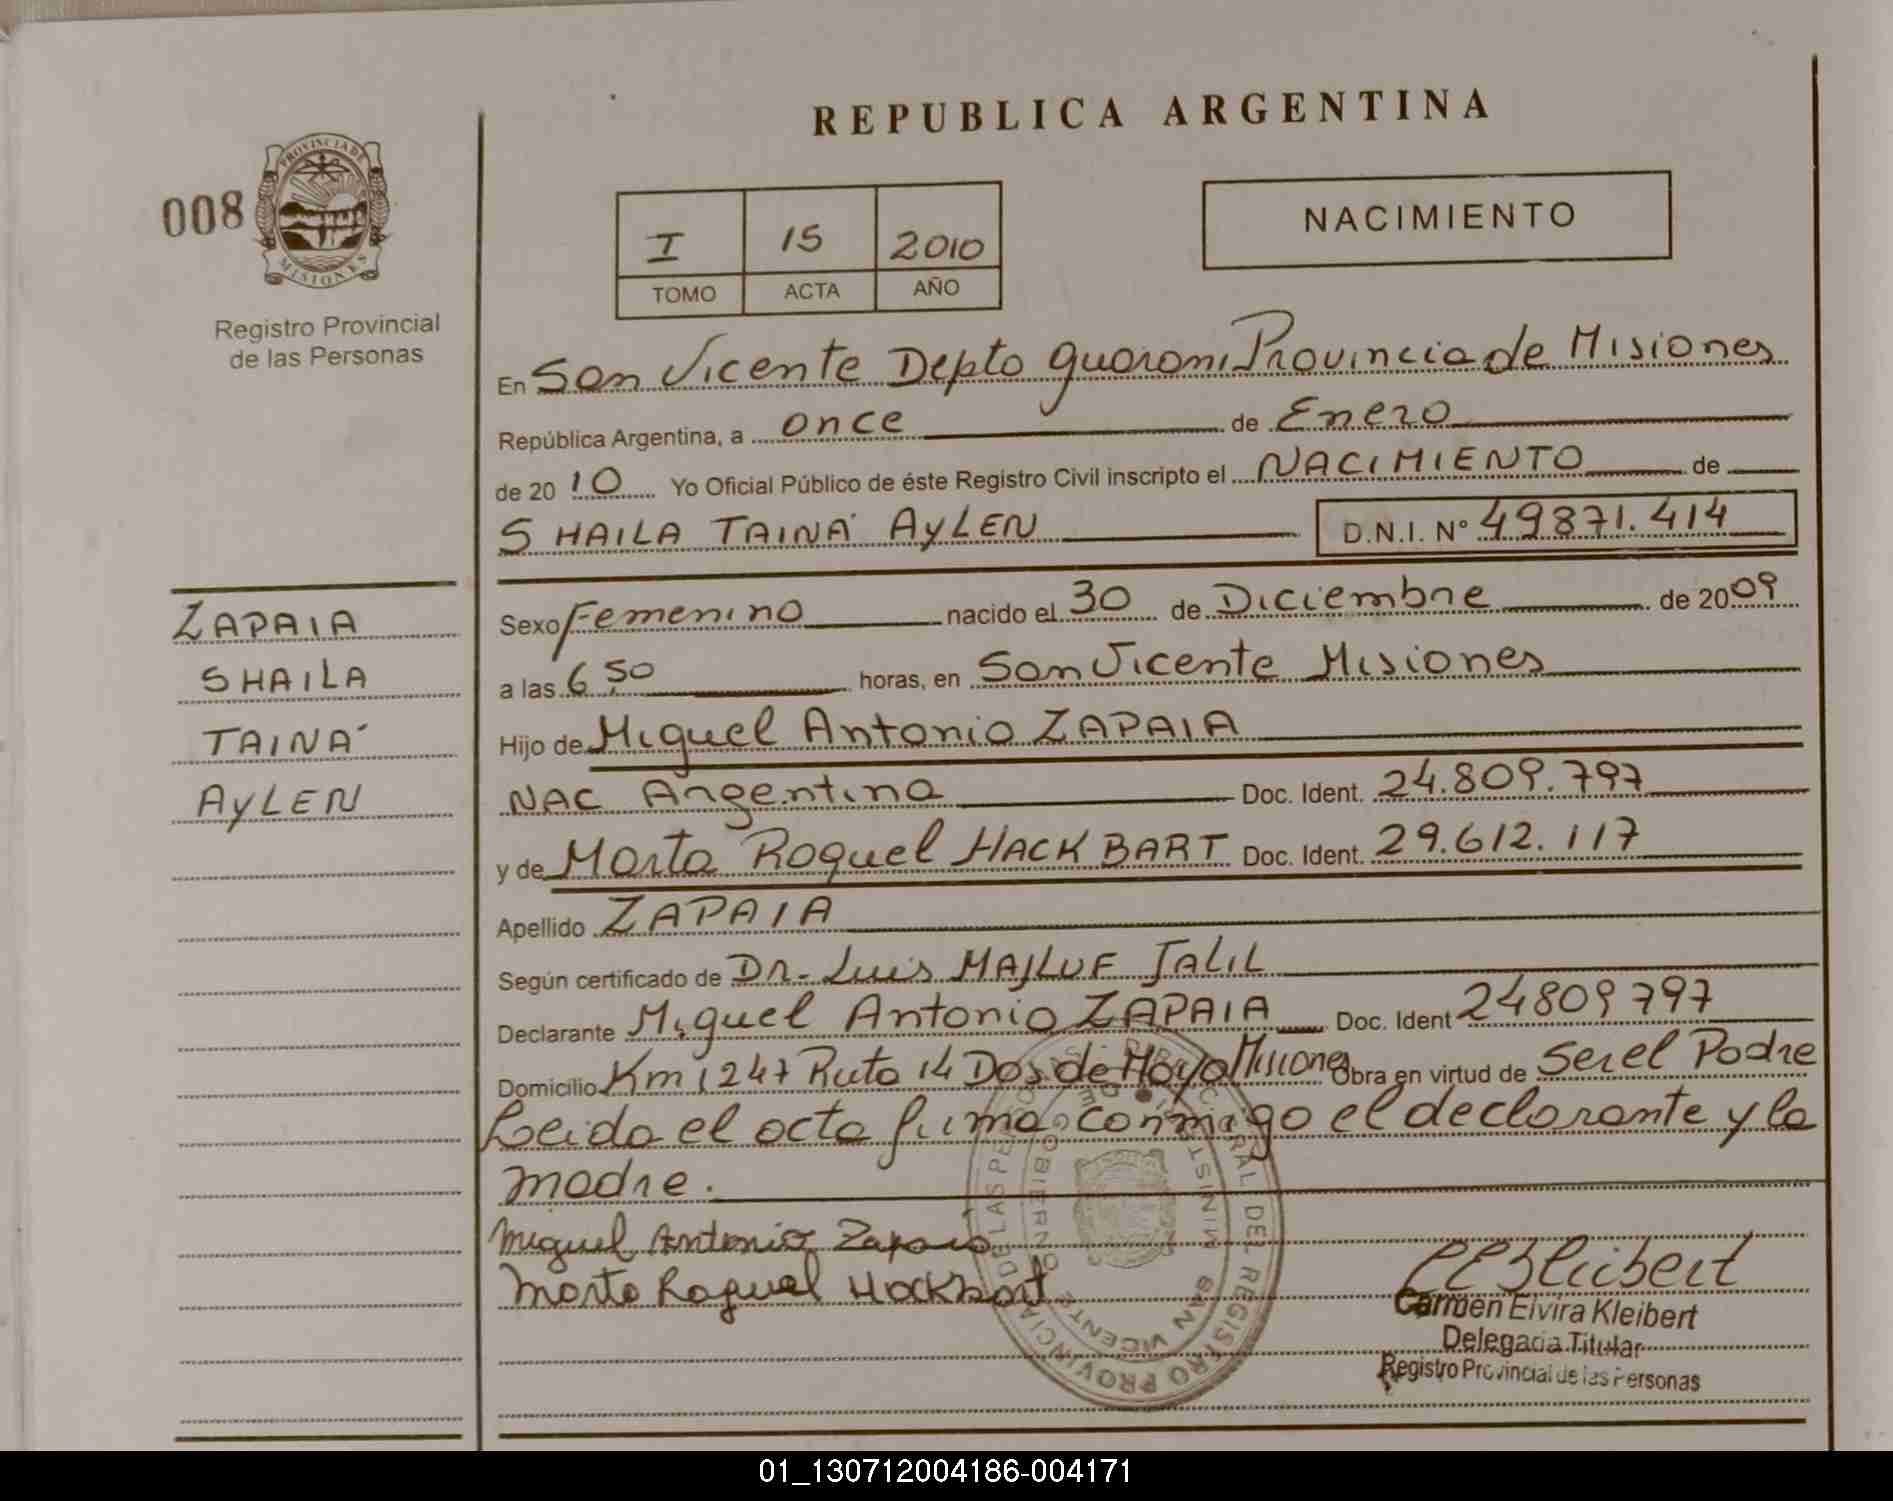 REPUBLICA ARGENTINA
008
PROVINCIA DE
MISIONES
Registro Provincial
de las Personas
I 15 2010
TOMO ACTA AÑO
NACIMIENTO
En San Vicente Depto guarani Provincia de Misiones
República Argentina, a once de Enero
de 2010 Yo Oficial Público de éste Registro Civil inscripto el NACIMIENTO de
SHAILA TAINÁ AYLEN D.N.I. Nº 49871.414
ZAPAIA
SHAILA
TAINÁ
AYLEN
Sexo Femenino nacido el 30 de Diciembre de 2009
a las 6,50 horas, en San Vicente Misiones
Hijo de Miguel Antonio ZAPAIA
NAC Argentina Doc. Ident. 24.809.797
y de Marta Raquel HACKBART Doc. Ident. 29.612.117
Apellido ZAPAIA
Según certificado de Dr. Luis MAJLUF JALIL
Declarante Miguel Antonio ZAPAIA Doc. Ident 24809797
Domicilio Km 1247 Ruta 14 Dos de Mayo Misiones Obra en virtud de Ser el Padre
Leida el acta firma conmigo el declarante y la
madre.
Miguel Antonio Zapaia
Marta Raquel Hackbart
Carmen Elvira Kleibert
Delegada Titular
Registro Provincial de las Personas
REGISTRO PROVINCIAL DE LAS PERSONAS
SAN VICENTE
01_130712004186-004171